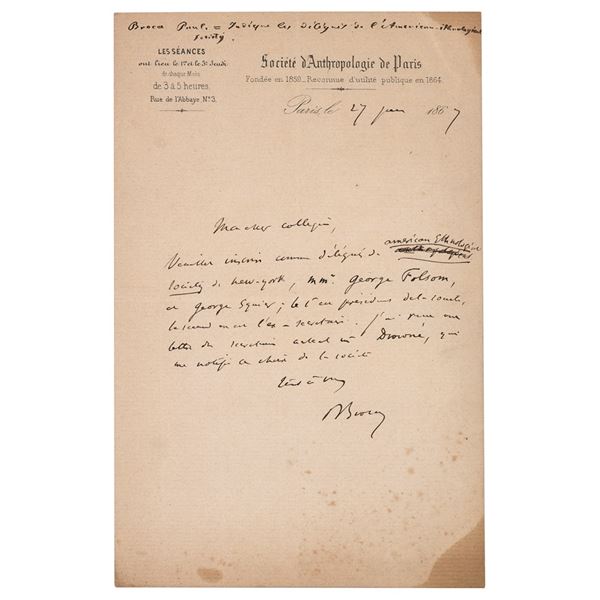 Broca Paul = Indique les délégués de l'American ethnological
Society.
LES SÉANCES
ont lieu le 1er et le 3e Jeudi
de chaque Mois
de 3 à 5 heures.
Rue de l'Abbaye, No 3.
Société d'Anthropologie de Paris
Fondée en 1859_Reconnue d'utilité publique en 1864.
Paris, le 27 juin 1867
Mon cher collègue,
Veuillez inscrire comme délégués de american Ethnological
society de New-york, mm. George Folsom,
et George Squier; le 1er est président de la société,
le second en est l'ex-secrétaire. J'ai reçu une
lettre du secrétaire actuel mr Drowné, qui
me notifie ce choix de la société
tout à vous
P Broca